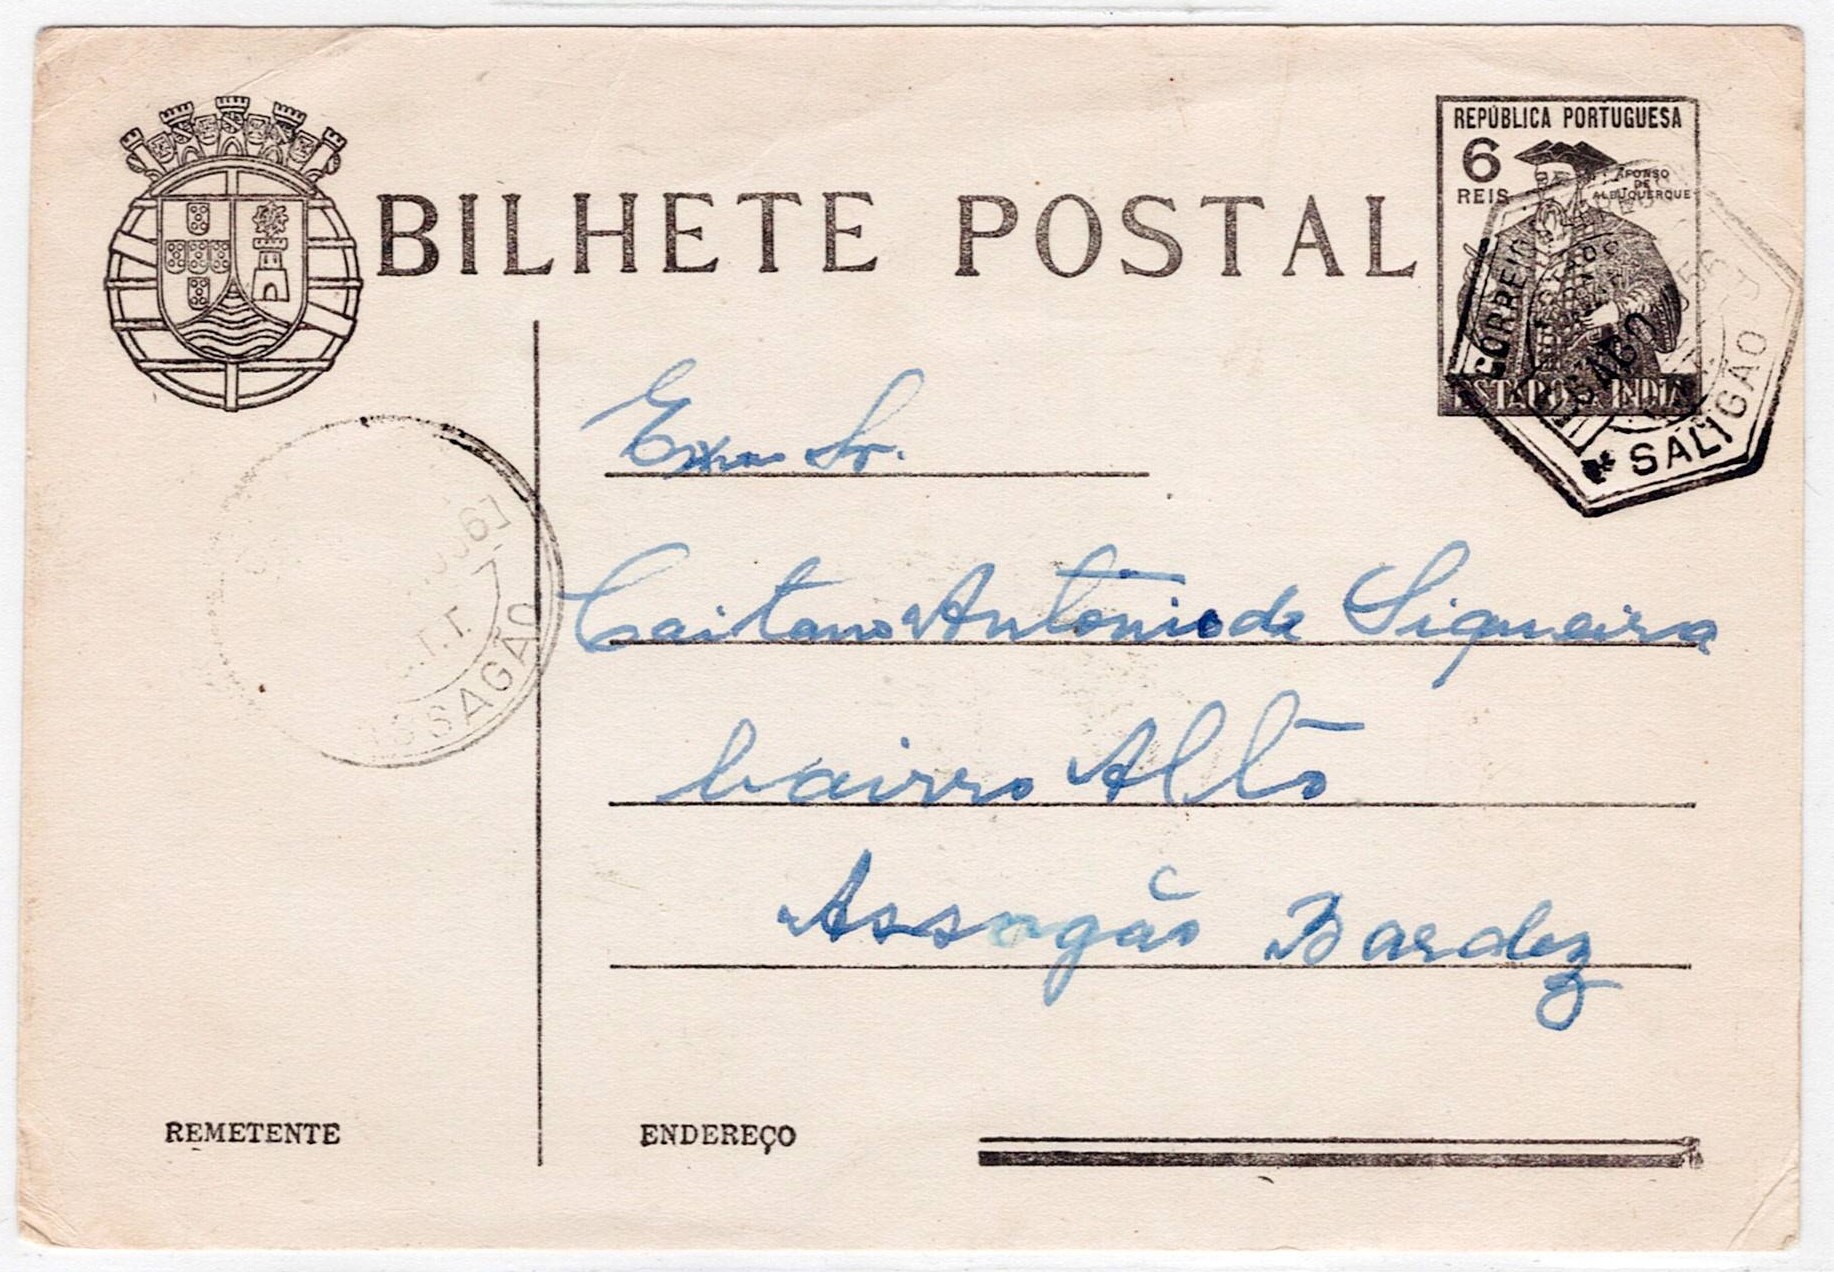 BILHETE POSTAL
REPÚBLICA PORTUGUESA
6
REIS
AFONSO
DE
ALBUQUERQUE
ESTADO DA INDIA
CORREIO
AGO
SALIGÃO
Exmo Sr.
Caitano António de Siqueira
bairro Alto
Assagão Bardez
T.T.
ASSAGÃO
REMETENTE
ENDEREÇO